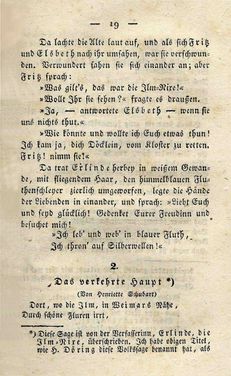 — 19 —
Da lachte die Alte laut auf, und als sich Fritz
und Elsbeth nach ihr umsahen, war sie verschwun-
den. Verwundert sahen sie sich einander an; aber
Fritz sprach:
»Was gilt's, das war die Ilm-Nixe!«
»Wollt Ihr sie sehen?« fragte es draußen.
»Ja, — antwortete Elsbeth — wenn sie
uns nichts thut.«
»Wie könnte und wollte ich Euch etwas thun!
Ich kam ja, dich Döcklein, vom Kloster zu retten.
Fritz! nimm sie!«
Da trat Erlinde herbey in weißem Gewan-
de, mit fliegendem Haar, den himmelblauen Flu-
thenschleyer zierlich umgeworfen, legte die Hände
der Liebenden in einander, und sprach: »Liebt Euch
und seyd glücklich! Gedenket Eurer Freudinn und
besuchet mich!
»Ich leb' und web' in blauer Fluth,
Ich thron' auf Silberwellen!«
2.
Das verkehrte Haupt *)
(Von Henriette Schubart)
Dort, wo die Ilm, in Weimars Nähe,
Durch schöne Fluren irrt,
*) Diese Sage ist von der Verfasserinn, Erlinde, die
Ilm-Nixe, überschrieben. Ich habe obigen Titel,
wie H. Döring diese Volkssage benannt hat, als